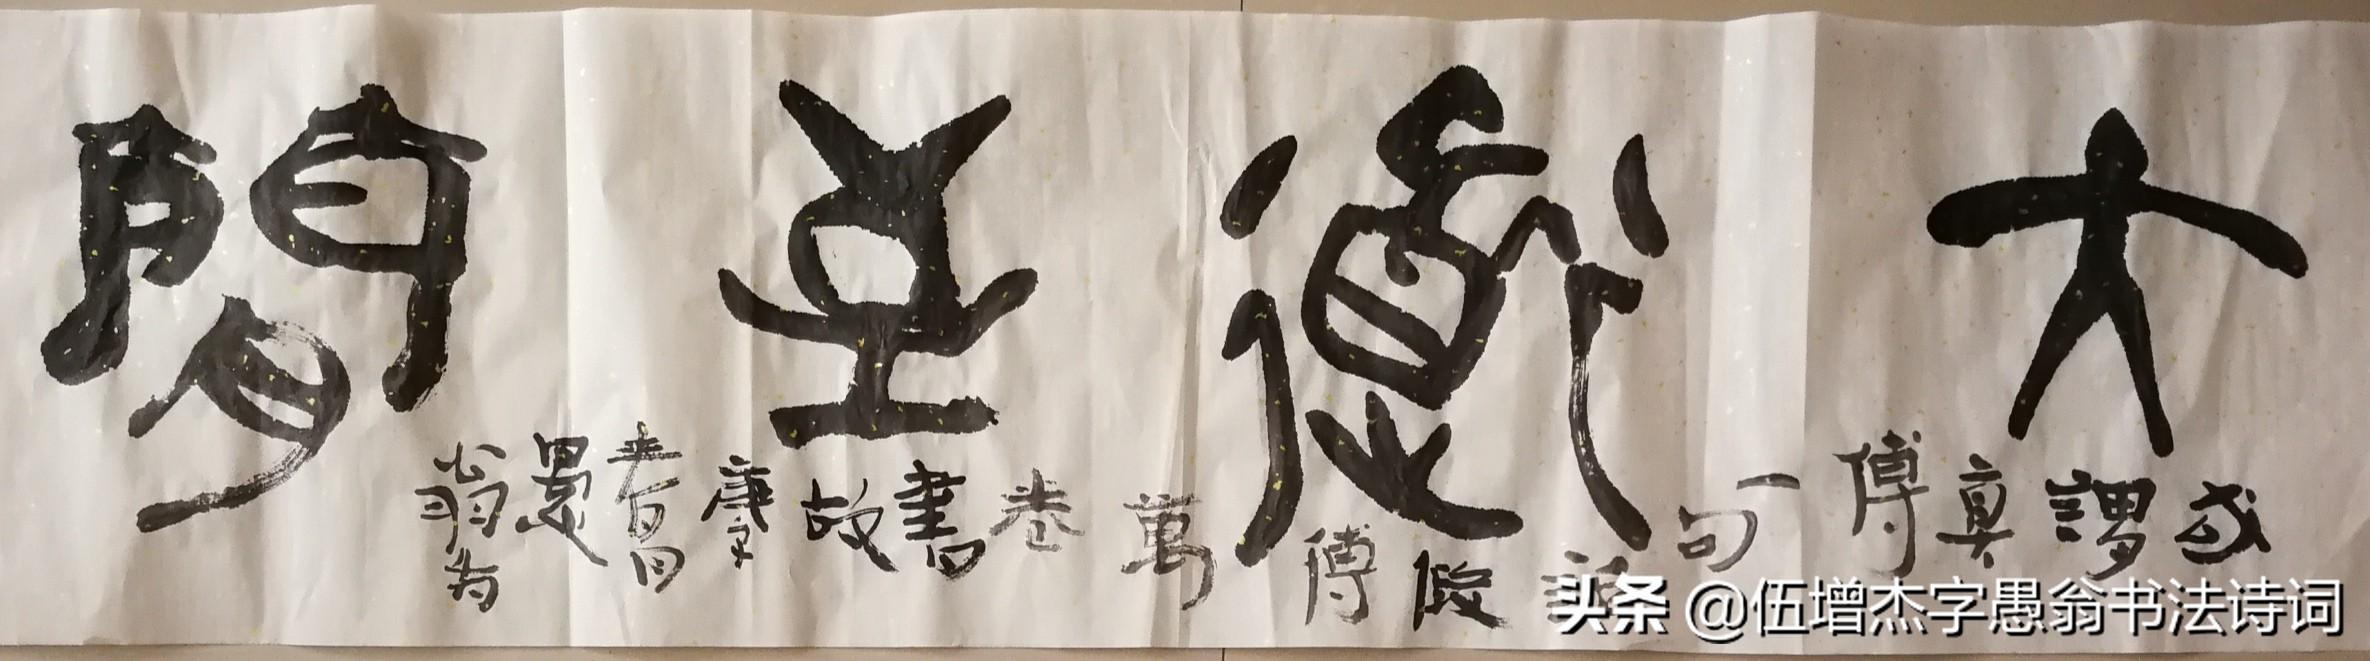 大道至閒
或謂真傳一句話假傳萬卷書故庚子春日愚翁为
头条 @伍增杰字愚翁书法诗词